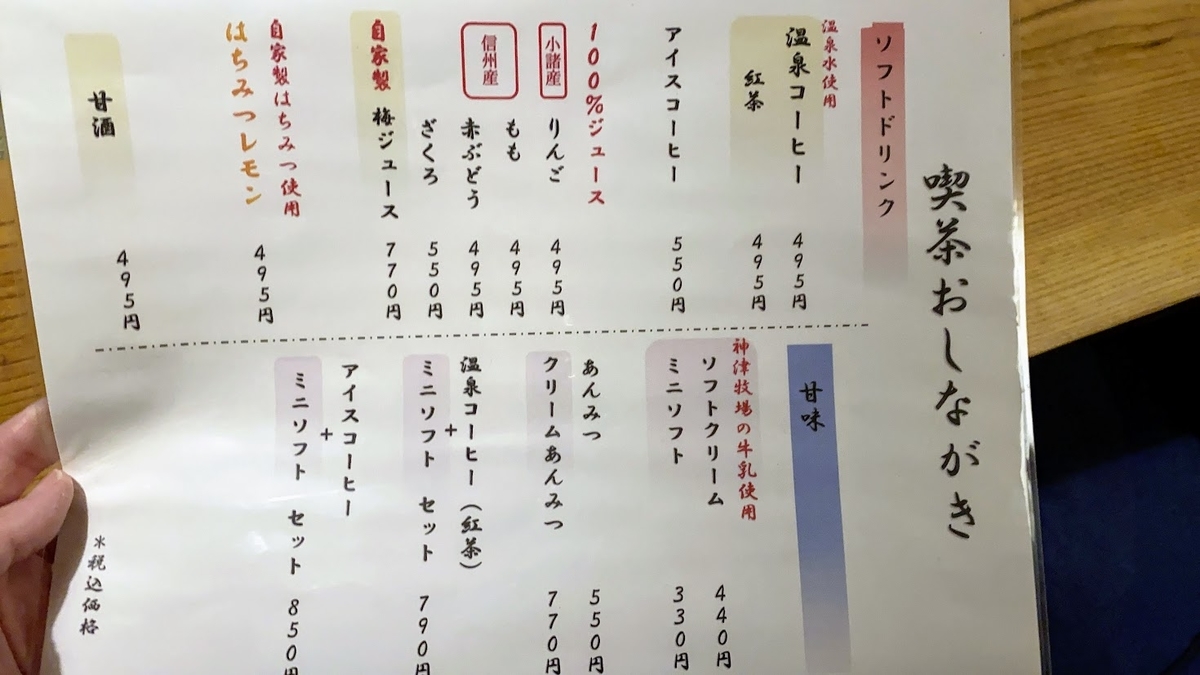 喫茶おしながき
ソフトドリンク
温泉水使用
温泉コーヒー 495円
紅茶 495円
アイスコーヒー 550円
100%ジュース
小諸産 りんご 495円
信州産
もも 495円
赤ぶどう 495円
ざくろ 550円
自家製 梅ジュース 770円
自家製はちみつ使用
はちみつレモン 495円
甘酒 495円
甘味
神津牧場の牛乳使用
ソフトクリーム 440円
ミニソフト 330円
あんみつ 550円
クリームあんみつ 770円
温泉コーヒー(紅茶)
+
ミニソフト セット 790円
アイスコーヒー
+
ミニソフト セット 850円
*税込価格